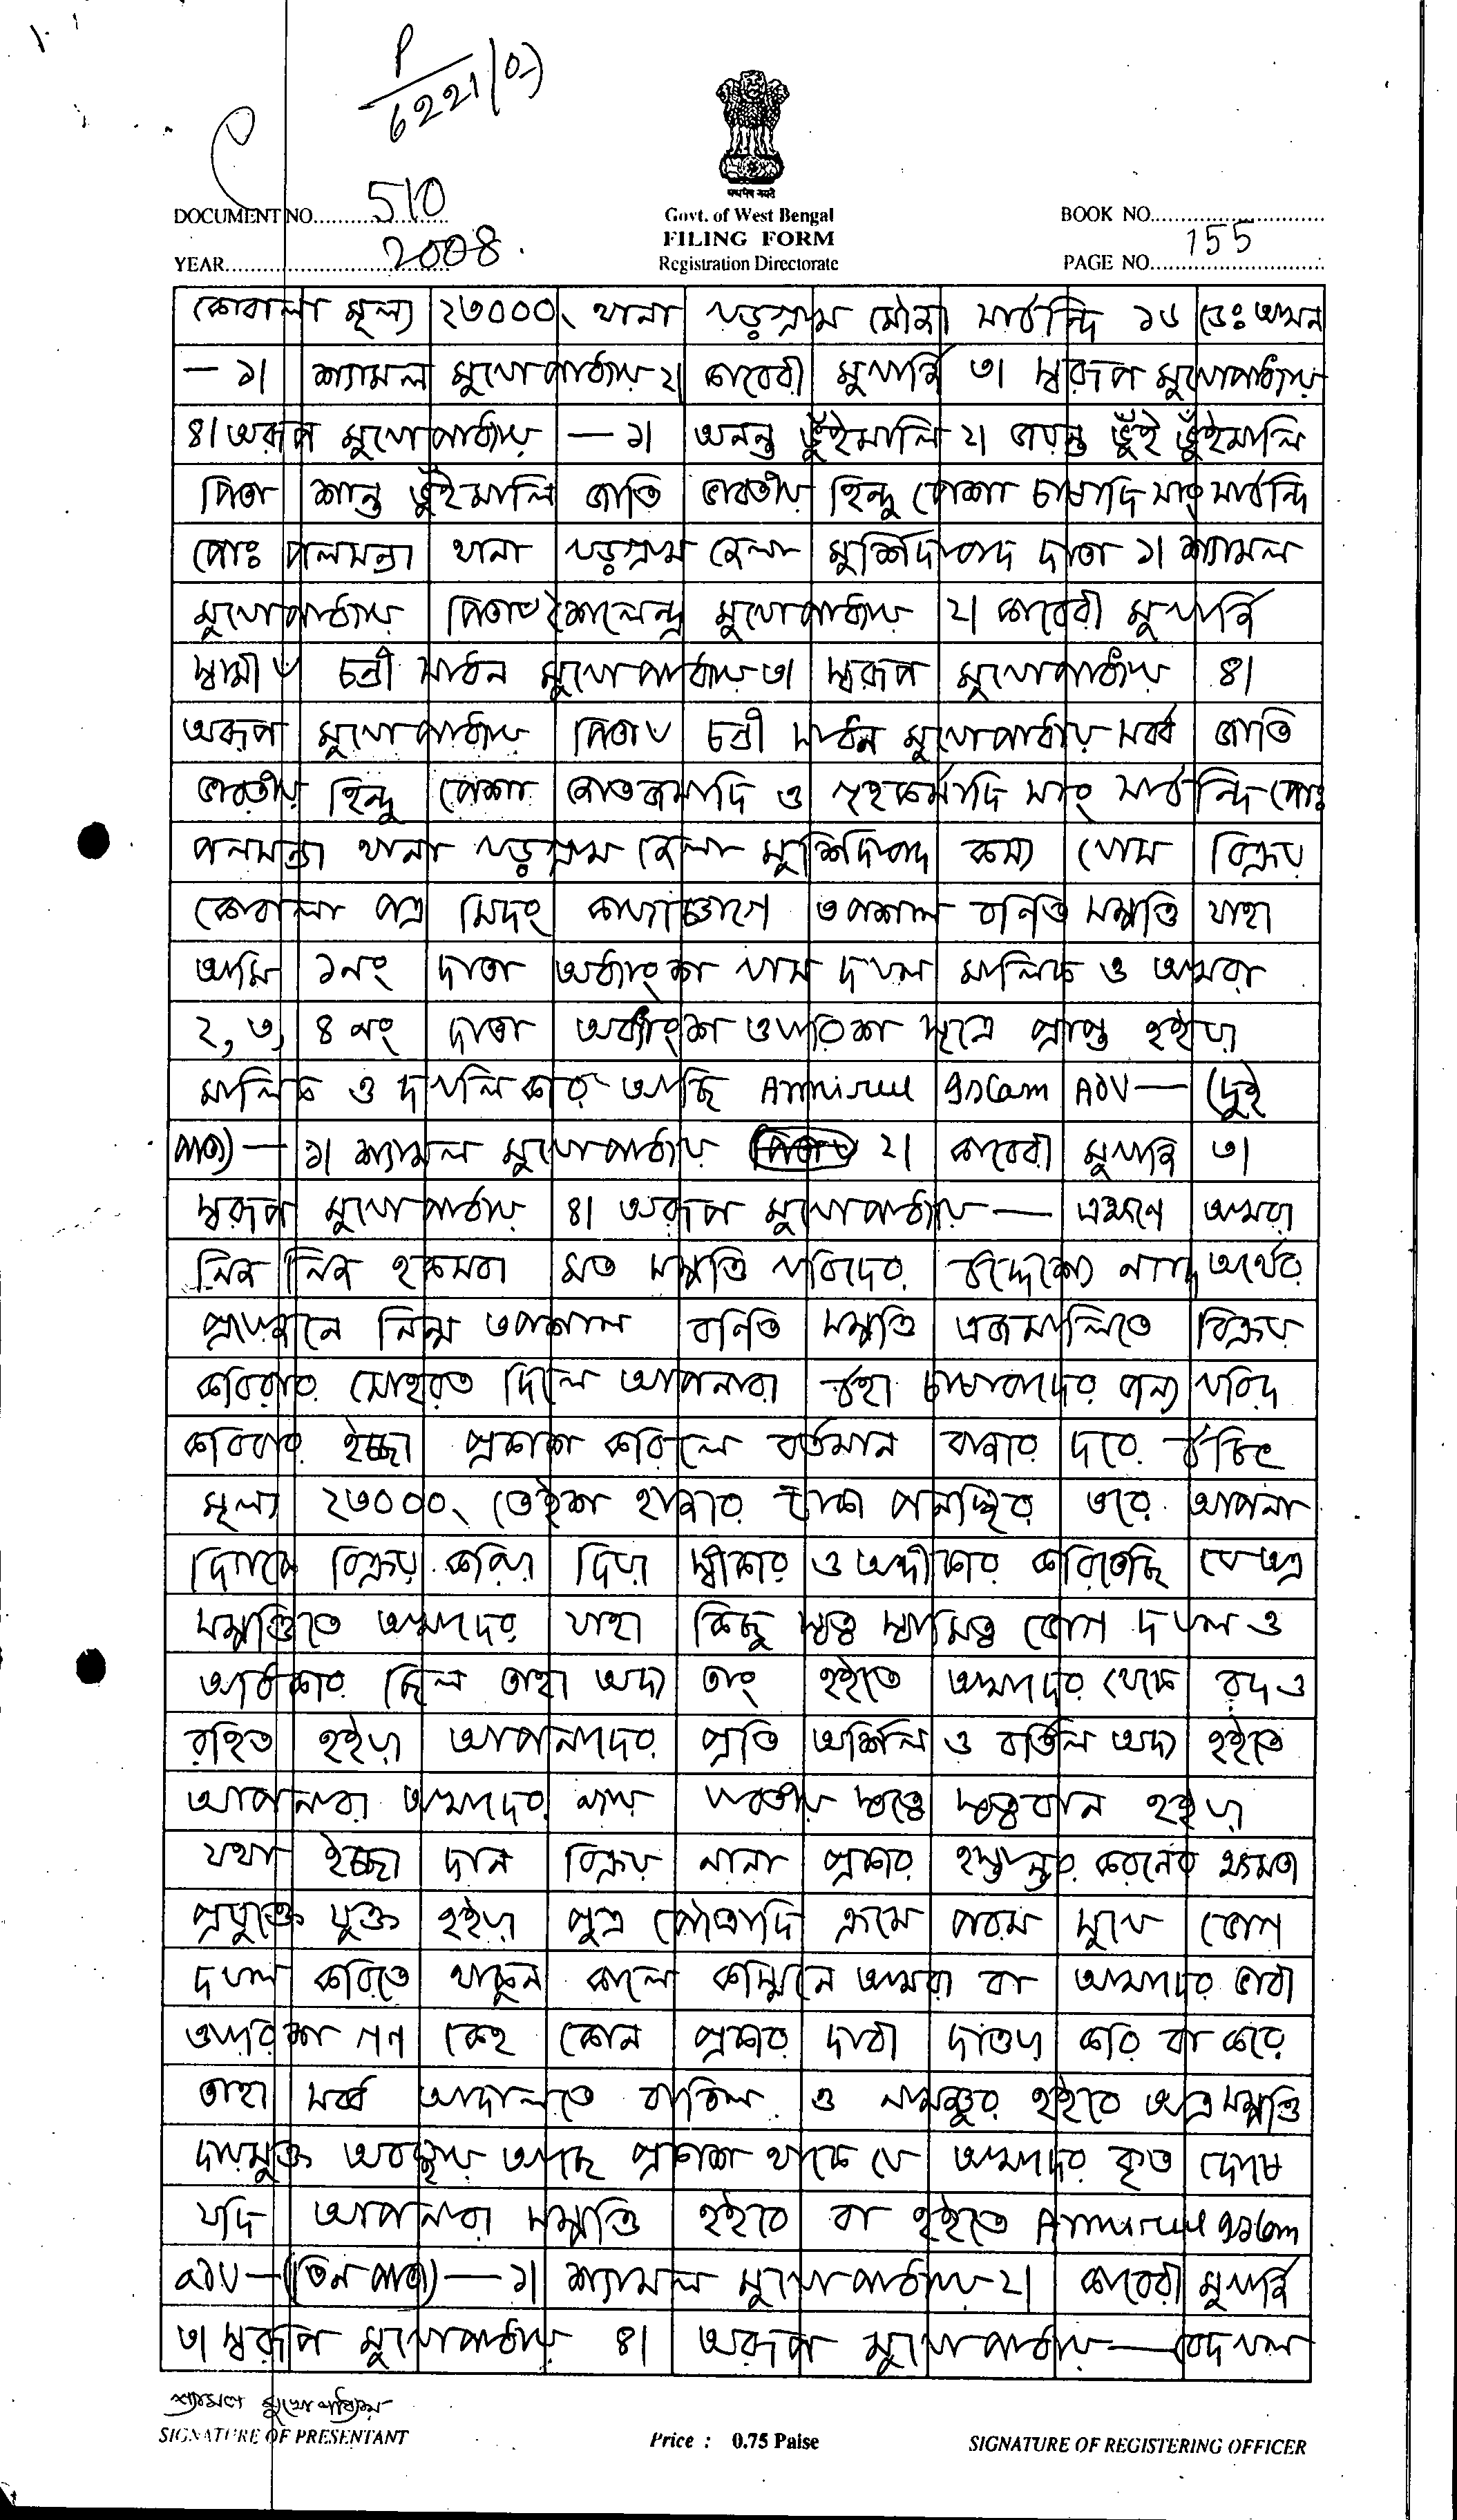 P
6221(0-)
DOCUMENT NO. 510
YEAR 2008.
Govt. of West Bengal
FILING FORM
Registration Directorate
BOOK NO.
PAGE NO. 155
কোবালা মূল্য ২৩০০০৲ থানা খড়গ্রাম মৌজা সাবন্দি ১৬ ডেঃ অমন
— ১। শ্যামল মুখোপাধ্যায় ২। কাবেরী মুখার্জি ৩। স্বরূপ মুখোপাধ্যায়
৪। অরূপ মুখোপাধ্যায় — ১। অনন্ত ভুঁইমালি ২। জয়ন্ত ভুঁই ভুঁইমালি
পিতা শান্ত ভুঁইমালি জাতি ভারতীয় হিন্দু পেশা চাষাদি সাং সাবন্দি
পোঃ পলসন্ডা থানা খড়গ্রাম জেলা মুর্শিদাবাদ দাতা ১। শ্যামল
মুখোপাধ্যায় পিতা ৺শৈলেন্দ্র মুখোপাধ্যায় ২। কাবেরী মুখার্জি
স্বামী ৺ চন্ডী সাধন মুখোপাধ্যায় ৩। স্বরূপ মুখোপাধ্যায় ৪।
অরূপ মুখোপাধ্যায় পিতা ৺ চন্ডী সাধন মুখোপাধ্যায় সর্ব্ব জাতি
ভারতীয় হিন্দু পেশা জোতজমাদি ও গৃহকর্মাদি সাং সাবন্দি পোঃ
পলসন্ডা থানা খড়গ্রাম জেলা মুর্শিদাবাদ কস্য খোস বিক্রয়
কোবালা পত্র মিদং কার্য্যাঞ্চাগে তপশীল বর্নিত সম্পত্তি যাহা
আমি ১নং দাতা অর্ধ্যাংশে খাস দখল মালিক ও আমরা
২, ৩, ৪ নং দাতা অর্ধ্যাংশ ওয়ারিশ সূত্রে প্রাপ্ত হইয়া
মালিক ও দখলিকার আছি Amirul Islam ADV — (দুই
পাতা) — ১। শ্যামল মুখোপাধ্যায় ২। কাবেরী মুখার্জি ৩।
স্বরূপ মুখোপাধ্যায় ৪। অরূপ মুখোপাধ্যায় — এক্ষণে আমরা
নিজ নিজ হকসরা মত সম্পত্তি খরিদের উদ্দেশ্যে নগদ অর্থের
প্রয়োজনে নিম্ন তপশীল বর্নিত সম্পত্তি এজমালিতে বিক্রয়
করিবার মোহরত দিলে আপনারা উহা চাষাবাদের জন্য খরিদ
করিবার ইচ্ছা প্রকাশ করিলে বর্তমান বাজার দরে উচিৎ
মূল্য ২৩০০০৲ তেইশ হাজার টাকা পনাদ্ধির তরে আপনা
দিগকে বিক্রয় করিয়া দিয়া স্বীকার ও অঙ্গীকার করিতেছি যে অত্র
সম্পত্তিতে আমাদের যাহা কিছু স্বত্ব স্বামিত্ব ভোগ দখল ও
অধিকার ছিল তাহা অদ্য তাং হইতে আমাদের থেকে রদ ও
রহিত হইয়া আপনাদের প্রতি অর্শিল ও বর্তিল অদ্য হইতে
আপনারা আমাদের ন্যায় যাবতীয় স্বত্বে স্বত্ববান হইয়া
যথা ইচ্ছা দান বিক্রয় নানা প্রকার হস্তান্তর করনের ক্ষমতা
প্রযুক্তে যুক্ত হইয়া পুত্র পৌত্রাদি ক্রমে পরম সুখে ভোগ
দখল করিতে থাকুন কালে কস্মিনে আমরা বা আমাদের ভাবী
ওয়ারিশ গণ কেহ কোন প্রকার দাবী দাওয়া করি বা করে
তাহা সর্ব্ব আদালতে বাতিল ও নামঞ্জুর হইবে অত্র সম্পত্তি
দায়মুক্ত অবস্থায় আছে প্রকাশ থাকে যে আমাদের কৃত দোষে
যদি আপনারা সম্পত্তি হইবে বা হইতে Amirul Islam
ADV — (তিন পাতা) — ১। শ্যামল মুখোপাধ্যায় ২। কাবেরী মুখার্জি
৩। স্বরূপ মুখোপাধ্যায় ৪। অরূপ মুখোপাধ্যায় — বেদখল
শ্যামল মুখোপাধ্যায়
SIGNATURE OF PRESENTANT
Price : 0.75 Paise
SIGNATURE OF REGISTERING OFFICER